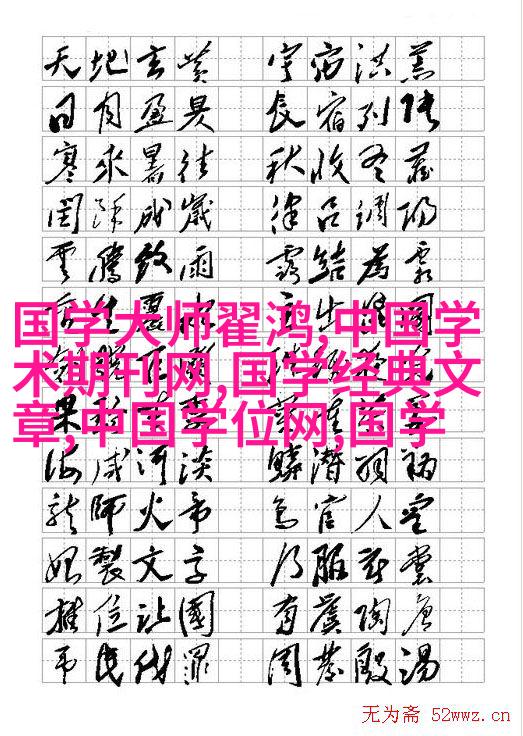 天地玄黄 宇宙洪荒
日月盈昃 辰宿列張
寒來暑往 秋收冬藏
閏餘成歲 律呂調陽
雲騰致雨 露結為霜
国学大师翟鸿,中国学
术期刊网,国学经典文
章,中国学位网,国学
海咸河淡 鱗潛羽翔
龍師火帝 鳥官人皇
始製文字 乃服衣裳
推位让國 有虞陶唐
弔民伐罪 周發殷湯
无为斋 52wwz.cn